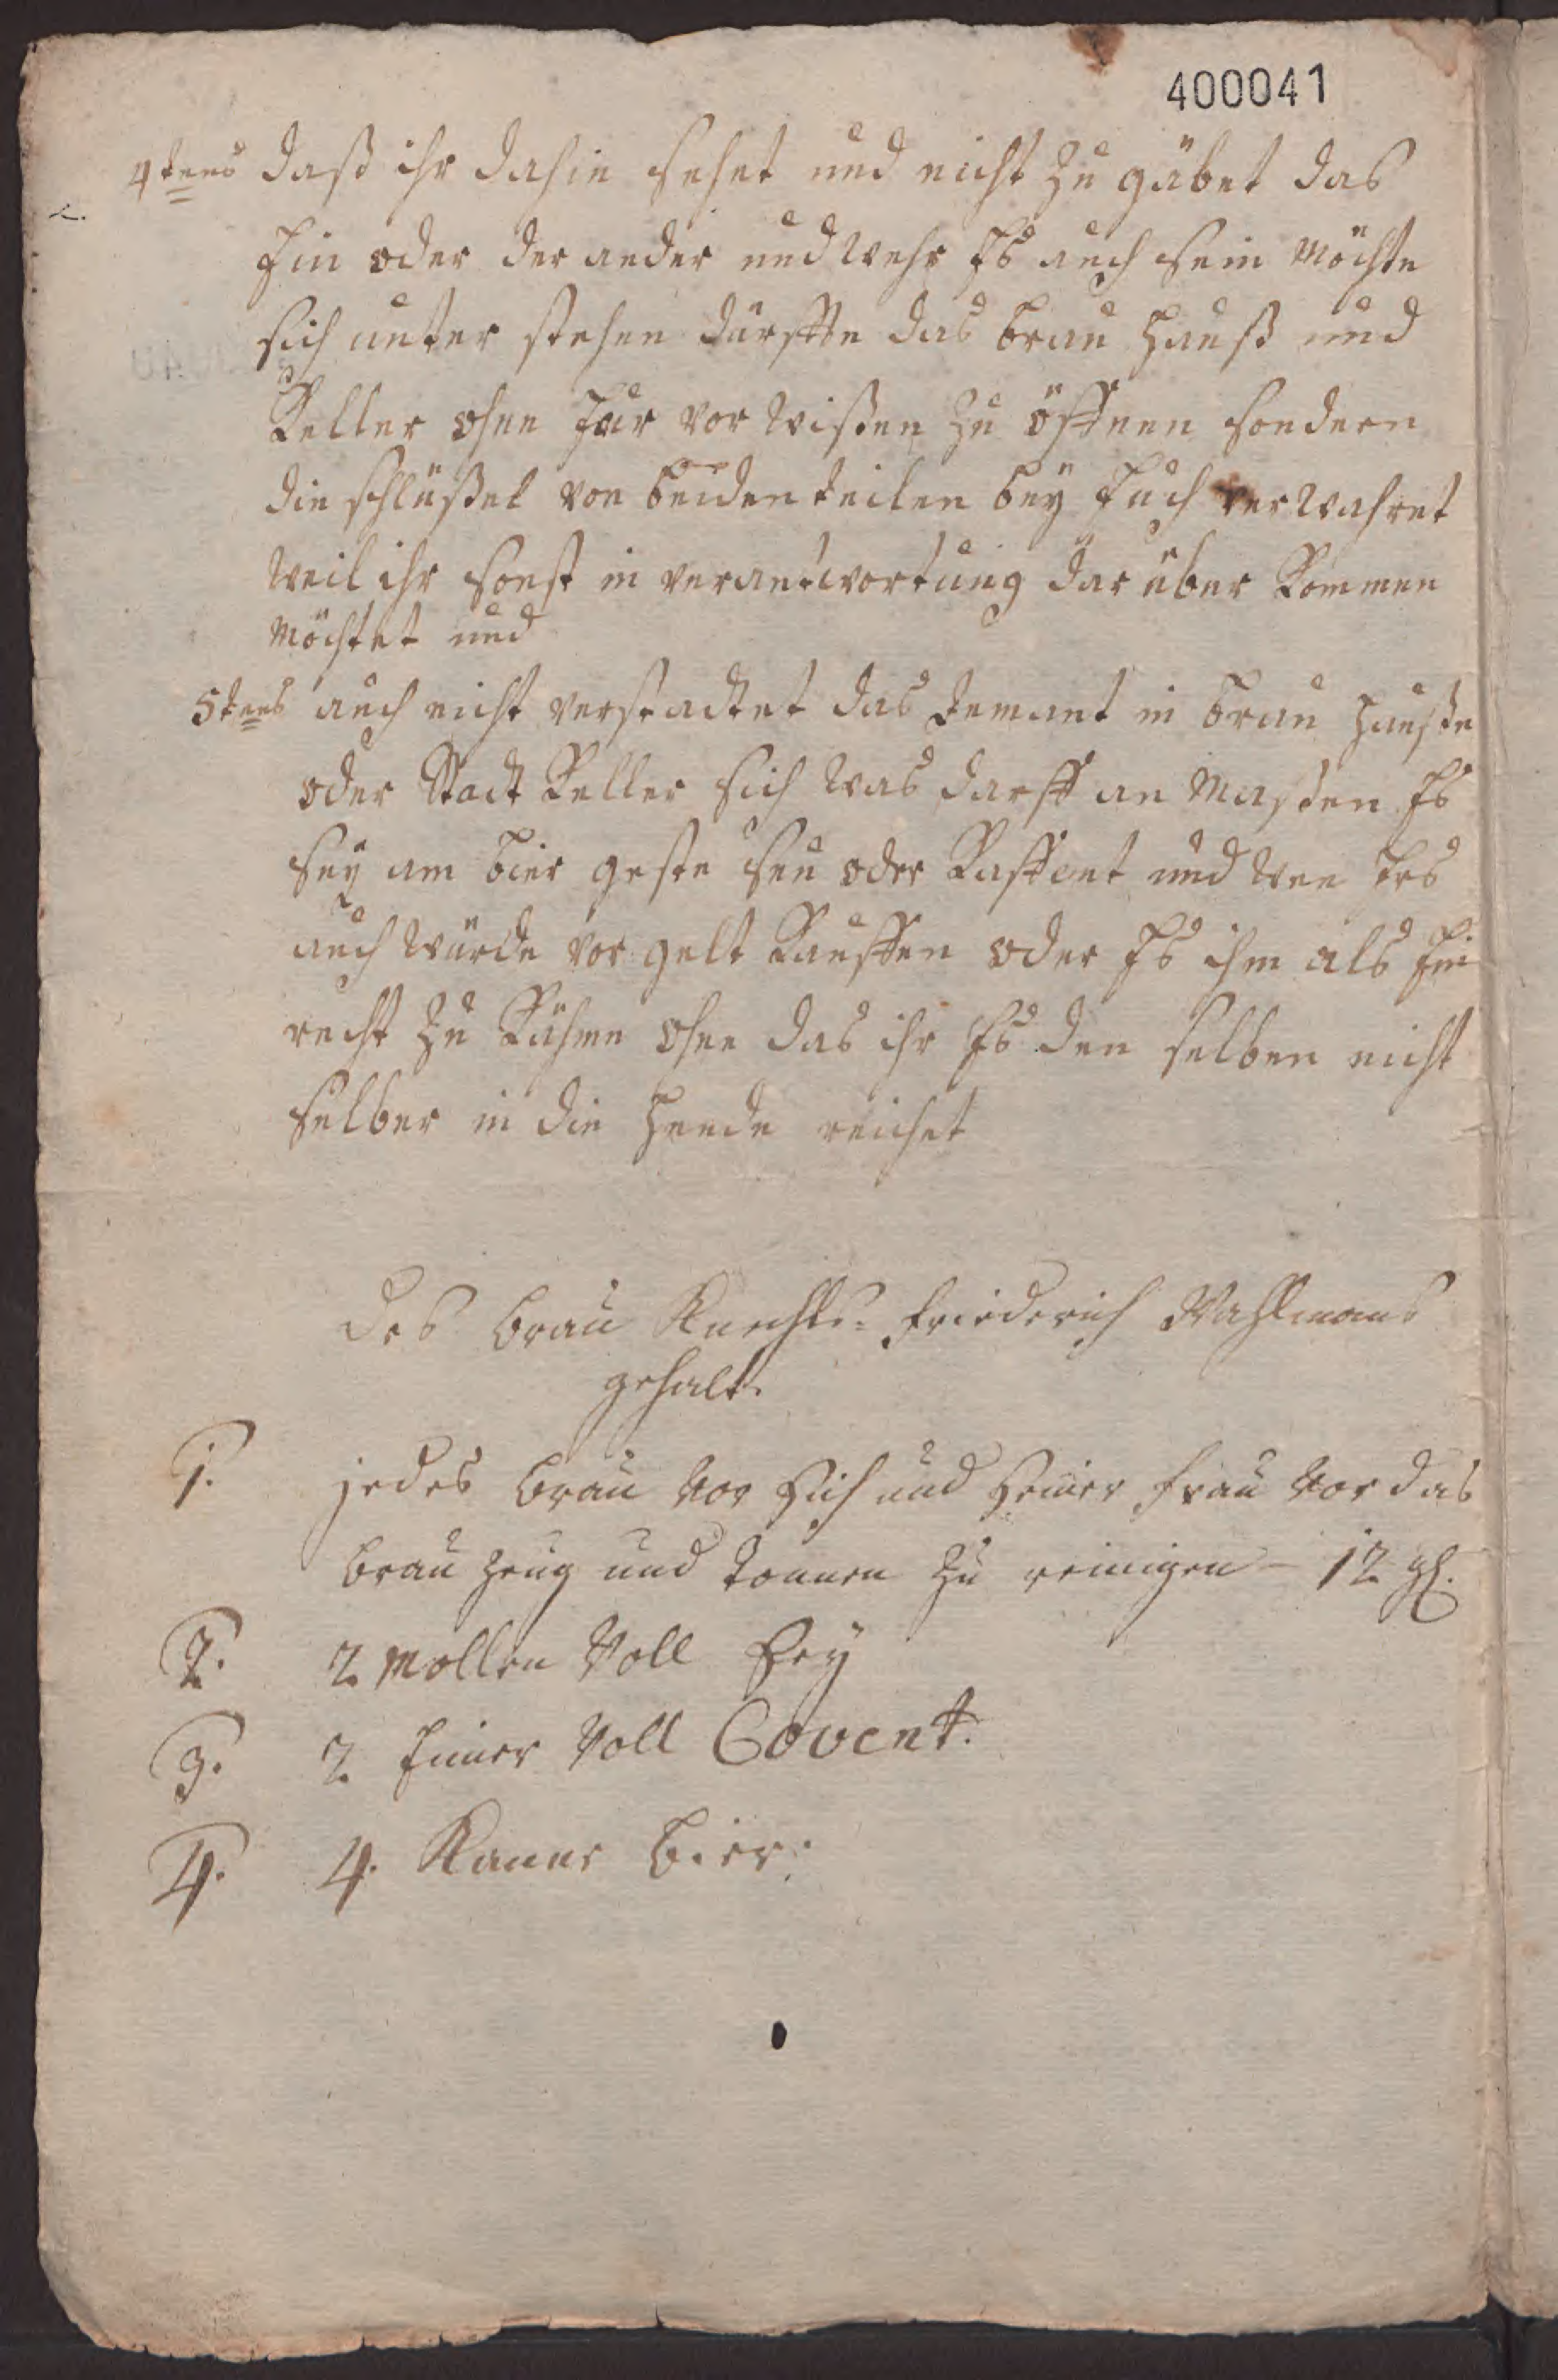 400041
4tens daß ihr dahin sehet und nicht zu gäbet das
Ein oder der ander und wehr Es auch sein möchte
sich unter stehen dürffte das brau Hauß und
Keller ohne Eur vor wißen zu öffnen sondern
die schlüßel von beiden teilen beÿ Euch verwahret
weil ihr sonst in verantwortung dar über kommen
möchtet und
5tens auch nicht verstadtet das Jemant in brau Hauße
oder Stadt Keller sich was darff an maßen Es
seÿ am bier geste seu oder Kaffent und wen Ers
auch würde vor gelt Kauffen oder Es ihm als Ein
recht zu Kähme ohne das ihr Es den selben nicht
selber in die Hende reichet
Des Brau Knechts- Friederich Wahlmans
gehalt.
1. jedes Brau vor sich und seiner frau vor das
brau zeug und tonnen zu reinigen - 12 gl.
2. 2 Mollen Voll Sey
3. 2 Eimer Voll Covent.
4. 4. Kanne Bier.